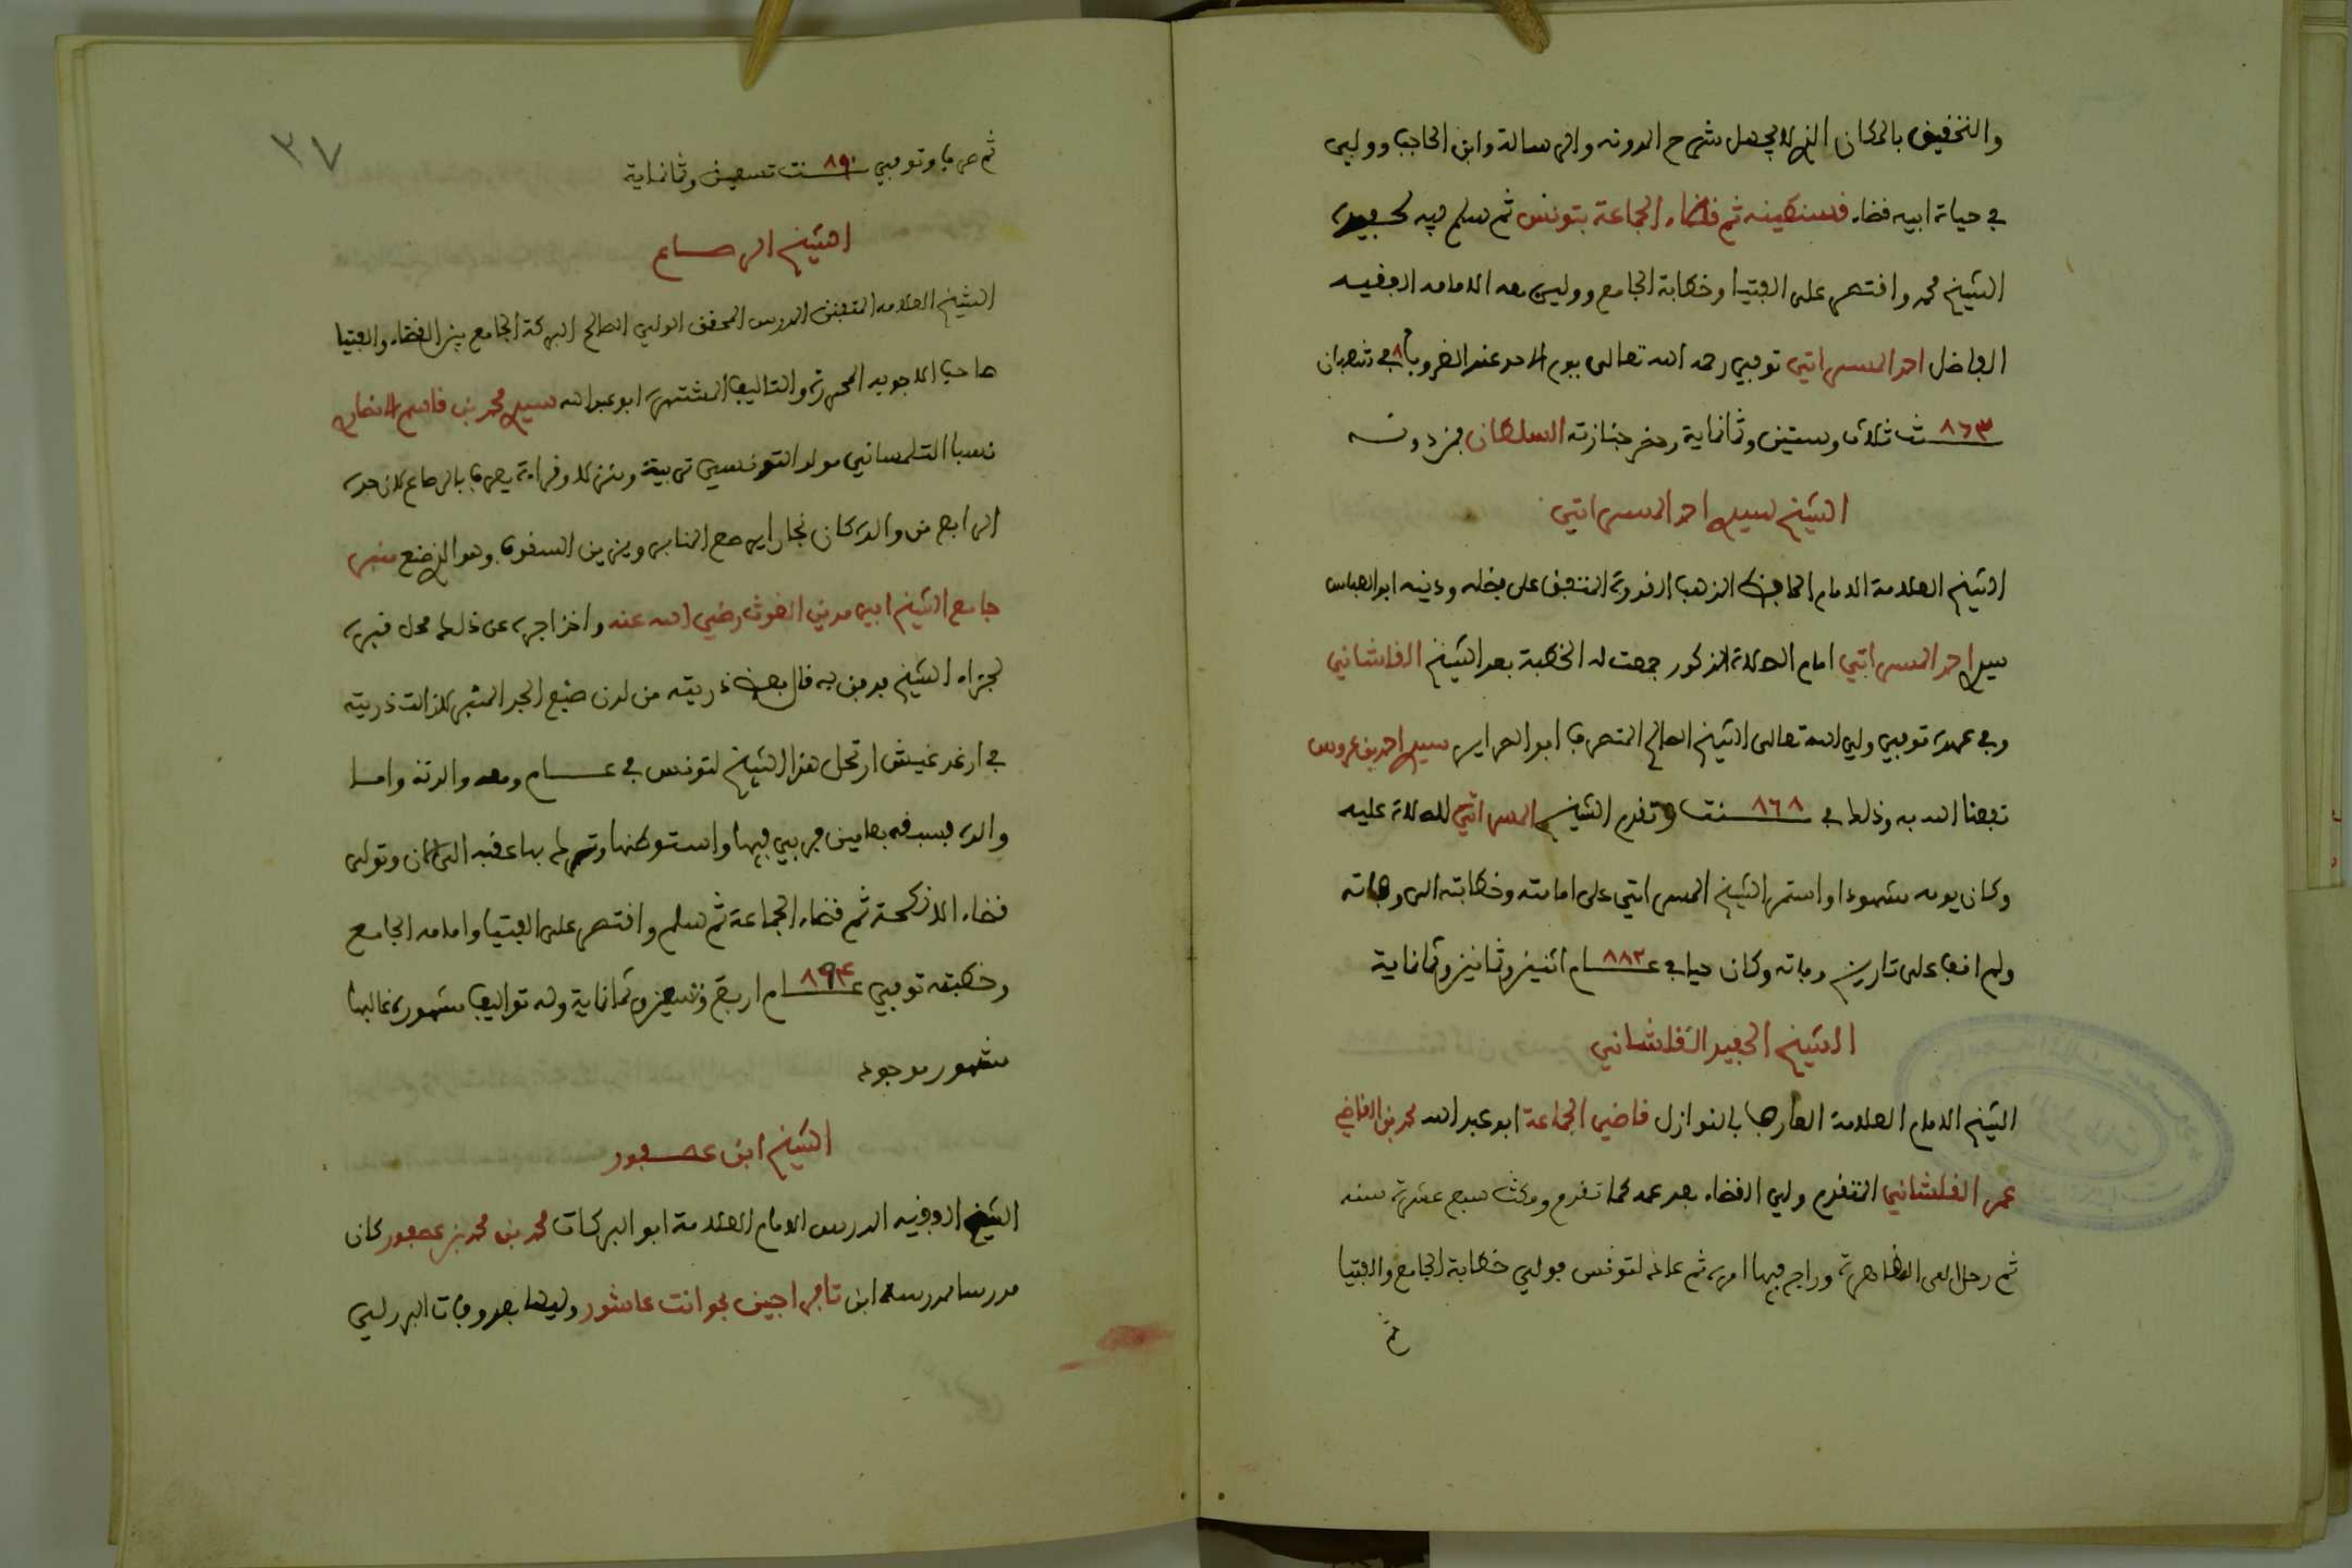 والتحقيق بالمكان الذي لا يجهل شرح المدونة والرسالة وابن الحاجب وولي
في حياة ابيه قضاء قسنطينه ثم قضاء الجماعة بتونس ثم سلم فيه لحفيده
الشيخ محمد واقتصر على الفتيا وخطابة الجامع وولي بعده الامامه الفقيه
الفاضل احمد المسراتي توفي رحمه الله تعالى يوم الاحد عند الغروب ٨ في شعبان
٨٦٣ سنة ثلاث وستين وثمانماية وحضر جنازته السلطان فمن دونه
الشيخ سيدي احمد المسراتي
الشيخ العلامة الامام الحافظ المذهب القدوة المتفق على فضله ودينه ابو العباس
سيدي احمد المسراتي امام الصلاة المذكور جمعت له الخطبة بعد الشيخ القلشاني
وفي عهده توفي ولي الله تعالى الشيخ الصالح المتصرف ابو الصراير سيدي احمد بن عروس
نفعنا الله به وذلك في ٨٦٨ سنة وتقدم الشيخ المسراتي للصلاة عليه
وكان يومه مشهودا واستمر الشيخ المسراتي على امامته وخطابته الى وفاته
ولم اقف على تاريخ وفاته وكان حيا في عام ٨٨٢ اثنين وثمانين وثمانماية
الشيخ الحفيد القلشاني
الشيخ الامام العلامة العارف بالنوازل قاضي الجماعة ابو عبد الله محمد بن القاضي
عمر القلشاني المتقدم ولي القضاء بعد عمه كما تقدم ومكث سبع عشرة سنه
ثم رحل الى القاهرة وراج فيها امره ثم عاد لتونس فولي خطابة الجامع والفتيا
ثم
٣٧
ثم صرف وتوفي ٨٩٠ سنة تسعين وثمانماية
الشيخ الرصاع
الشيخ العلامه المتفنن المدرس المحقق الولي الصالح البركة الجامع بين القضاء والفتيا
صاحب الاجوبه المحررة والتاليف المشتهرة ابو عبد الله سيدي محمد بن قاسم الانصاري
نسبا التلمساني مولدا التونسي تربية ومنزلا وقراءة يعرف بالرصاع لان جده
الرابع من والده كان نجارا يرصع المنابر ويزين السقوف وهو الذي صنع منبر
جامع الشيخ ابي مدين الغوث رضي الله عنه واخذ اجره عن ذلك محل قبره
لجزاه الشيخ يدفن به قال بعض ذريته من لدن صنع الجد المنبر لا زالت ذريته
في ارغد عيش ارتحل هذا الشيخ لتونس في عام ومعه والدته واما
والده فسبقه بعامين فربي فيها واستوطنها وترك بها عقبه الى الان وتولى
قضاء الانكحة ثم قضاء الجماعة ثم سلم واقتصر على الفتيا وامامه الجامع
وخطبته توفي عام ٨٩٤ اربع وتسعين وثمانماية وله تواليف مشهورة غالبها
مشهور موجود
الشيخ ابن عصفور
الشيخ الفقيه المدرس الامام العلامة ابو البركات محمد بن محمد بن عصفور كان
مدرسا بمدرسة ابن تافراجين بحوانت عاشور وليها بعد وفات البرزلي